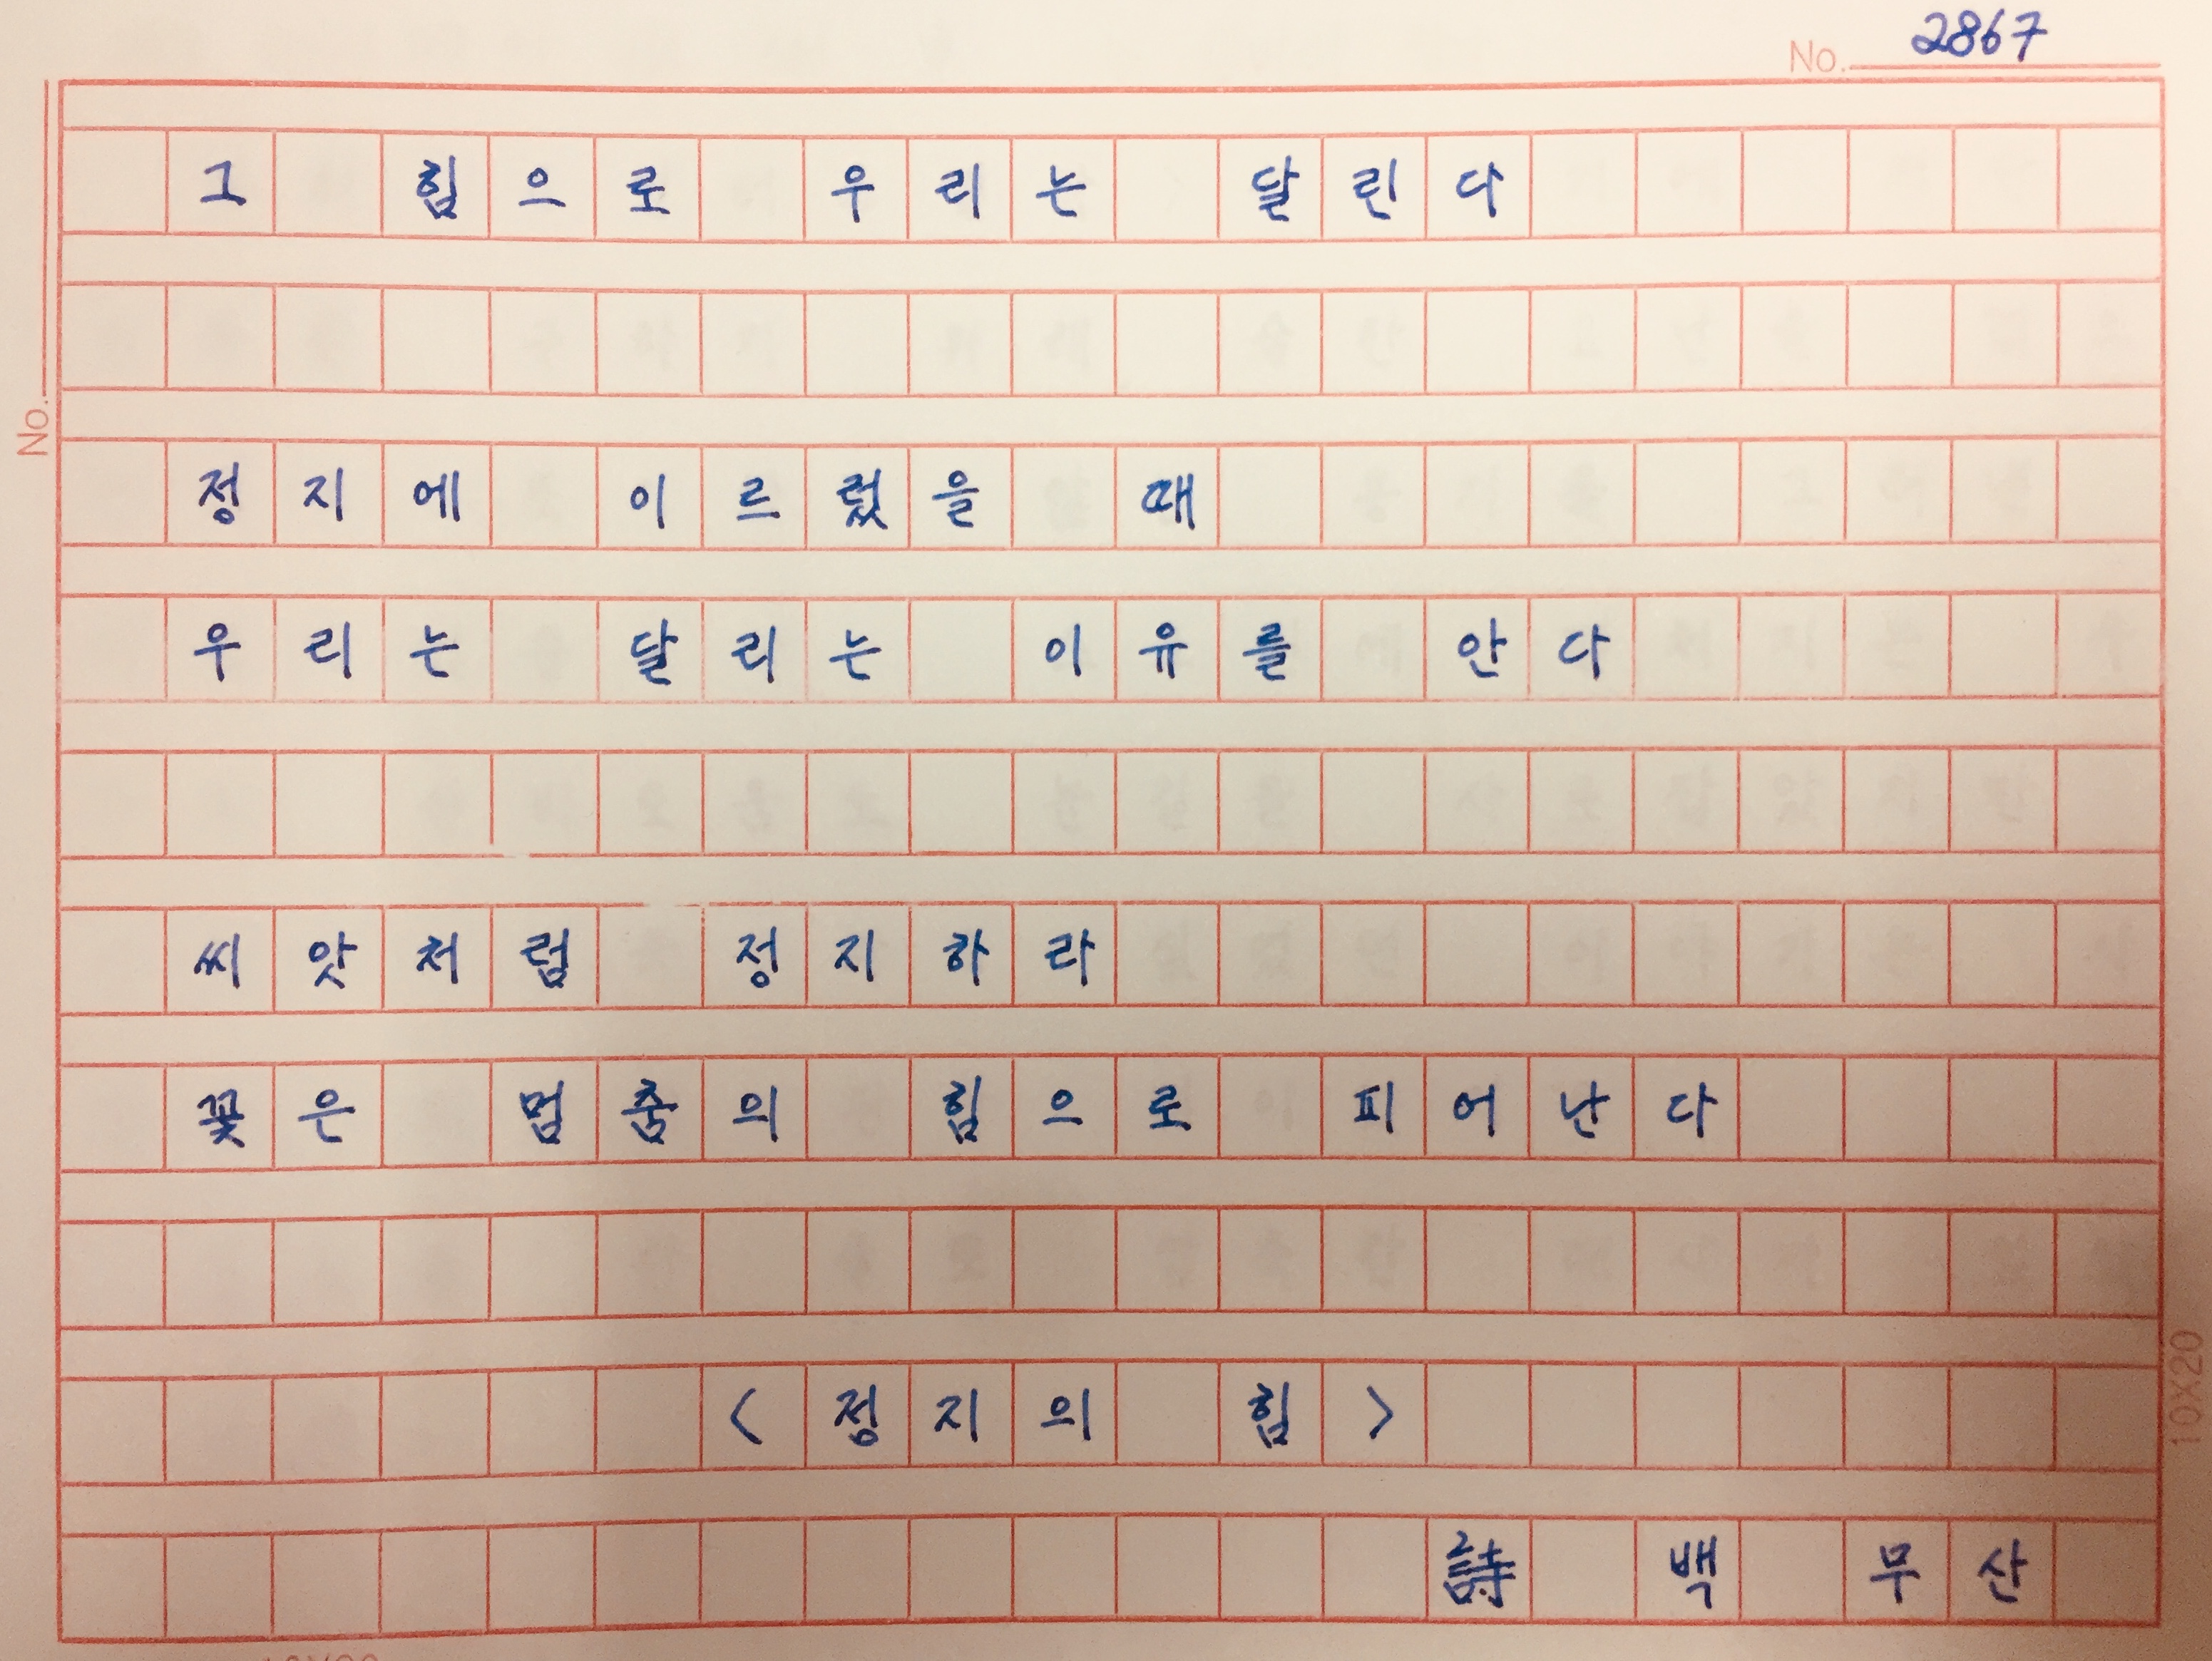 No. 2867
그 힘으로 우리는 달린다
No.
정지에 이르렀을 때
우리는 달리는 이유를 안다
씨앗처럼 정지하라
꽃은 멈춤의 힘으로 피어난다
<정지의 힘>
詩 백 무산
10X20